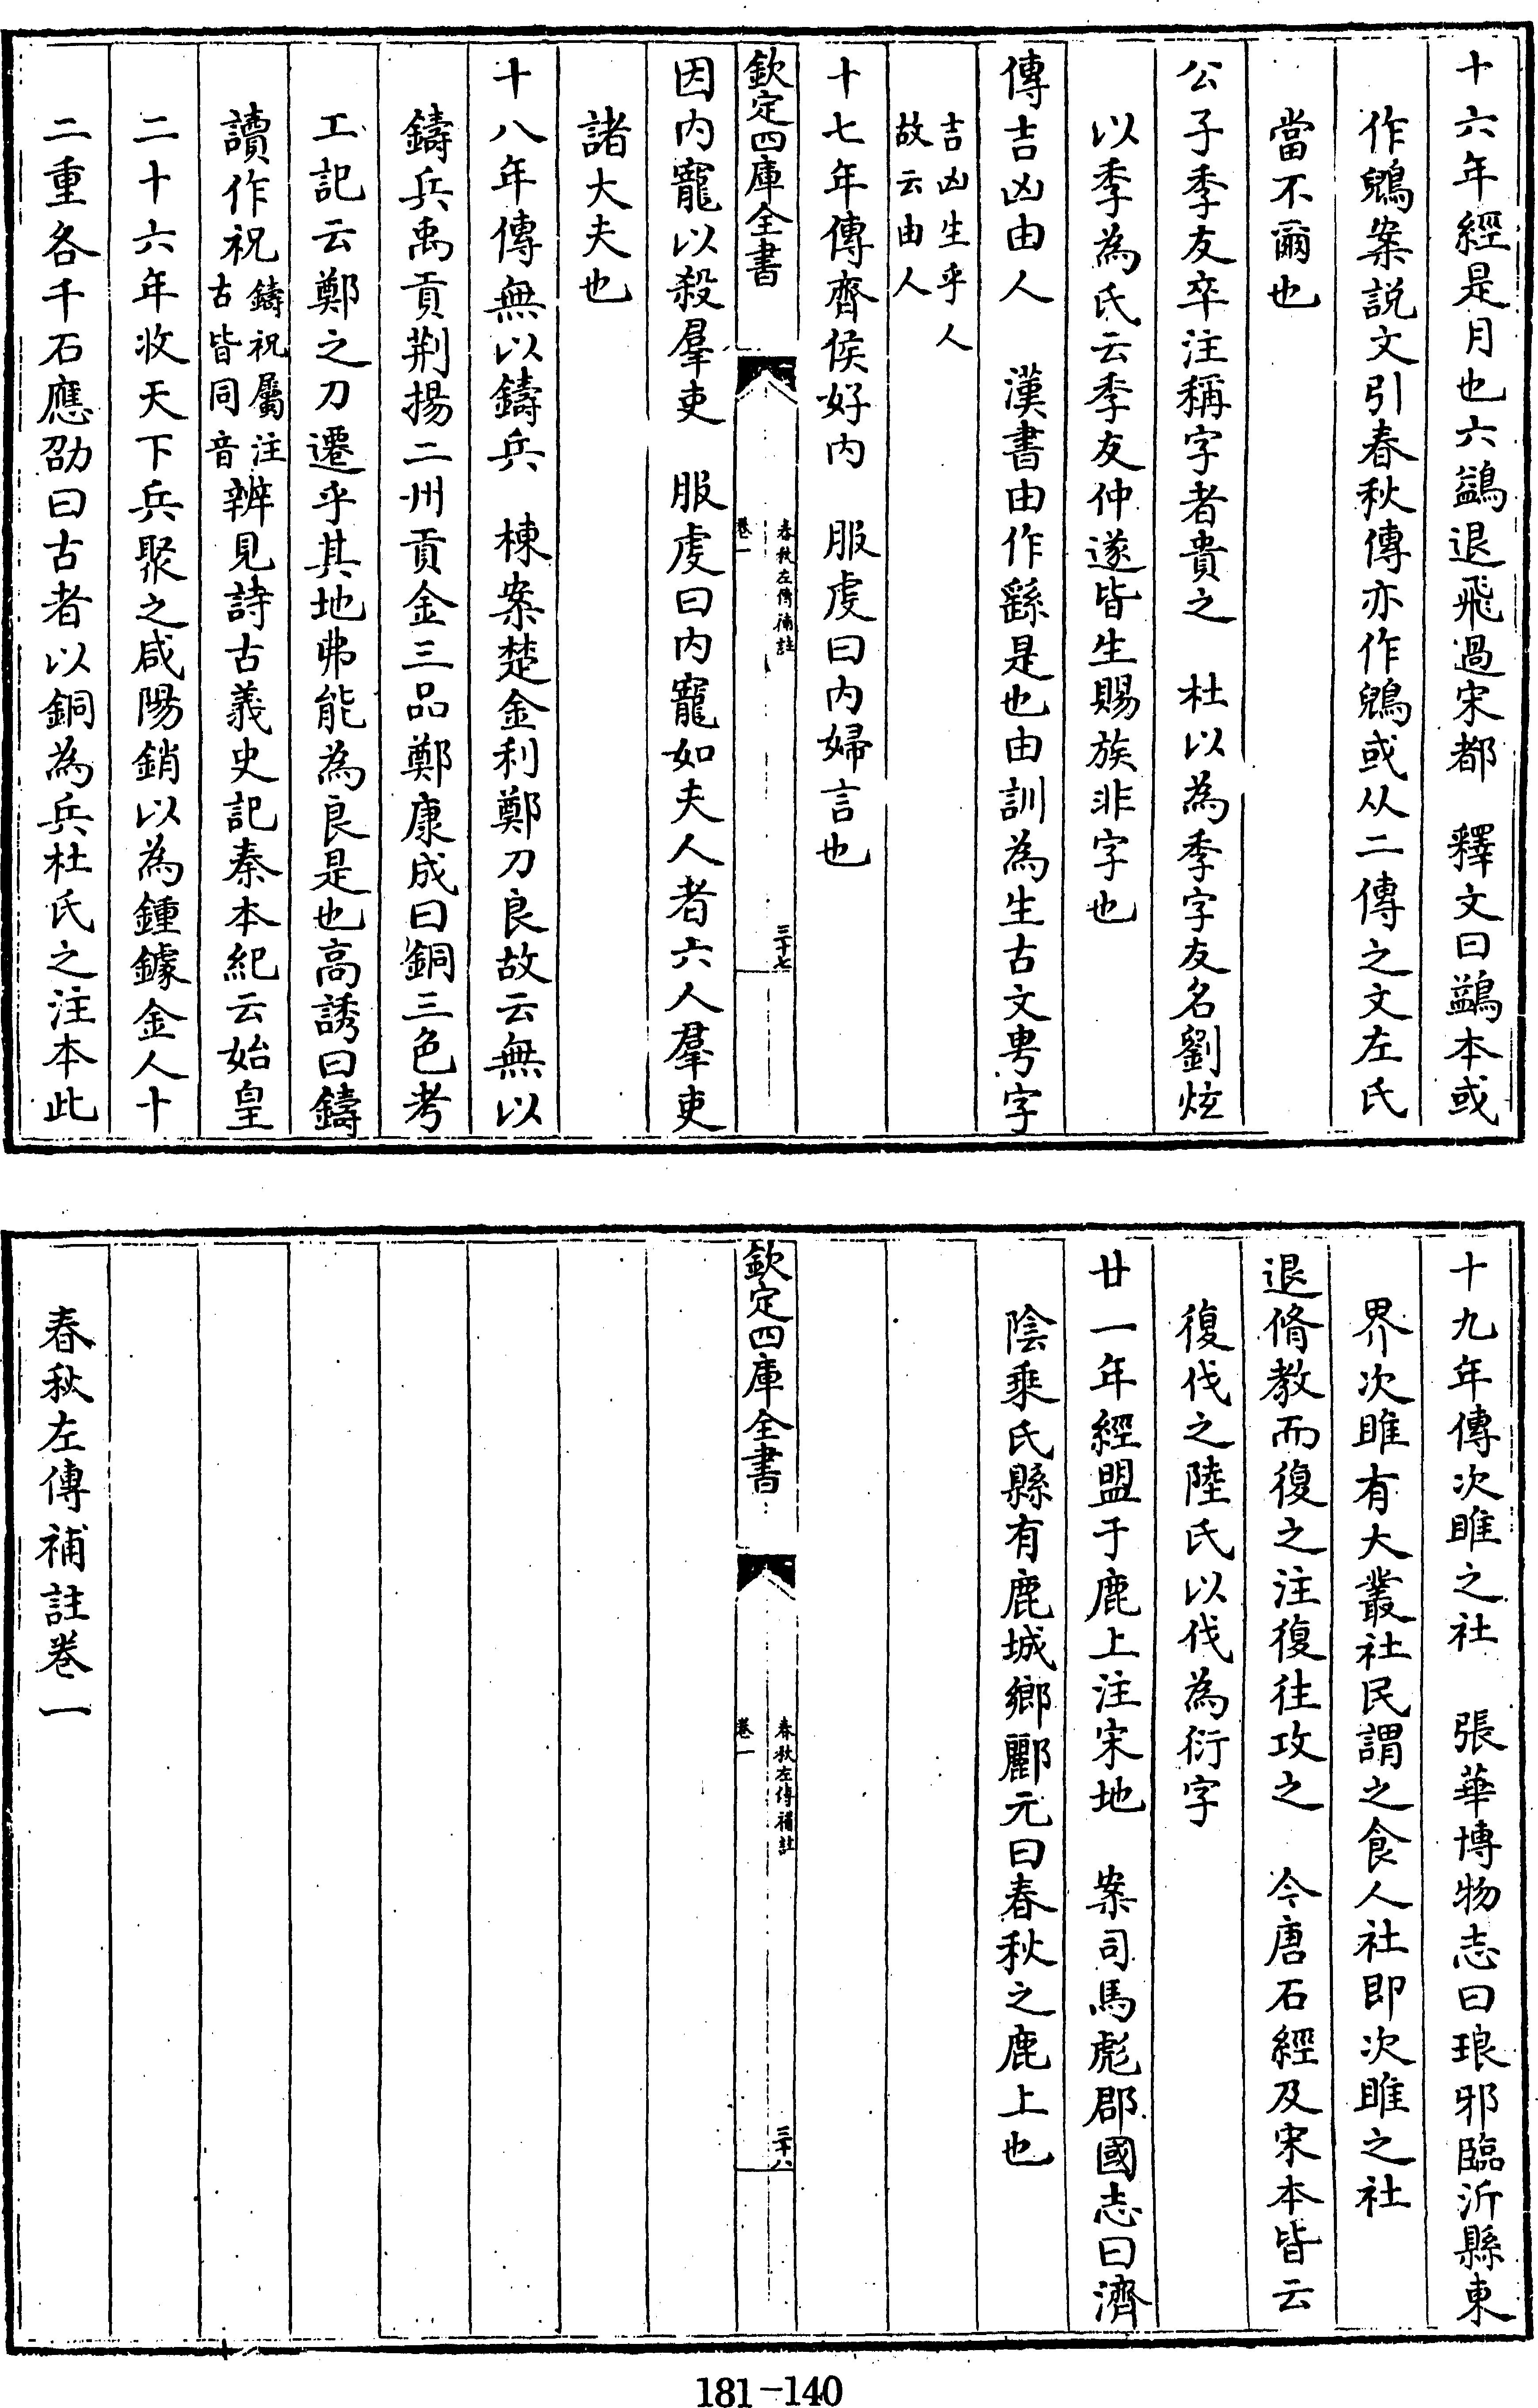 十六年經是月也六鷁退飛過宋都　釋文曰鷁本或
作鶂案説文引春秋傳亦作鶂或从二傳之文左氏
當不爾也
公子季友卒注稱字者貴之　杜以為季字友名劉炫
以季為氏云季友仲遂皆生賜族非字也
傳吉凶由人　漢書由作繇是也由訓為生古文甹字
吉凶生乎人
故云由人
十七年傳齊侯好内　服虔曰内婦言也
欽定四庫全書
春秋左傳補註
卷一
三十七
因内寵以殺羣吏　服虔曰内寵如夫人者六人羣吏
諸大夫也
十八年傳無以鑄兵　棟案楚金利鄭刀良故云無以
鑄兵禹貢荆揚二州貢金三品鄭康成曰銅三色考
工記云鄭之刀遷乎其地弗能為良是也高誘曰鑄
讀作祝鑄祝屬注古皆同音辨見詩古義史記秦本紀云始皇
二十六年收天下兵聚之咸陽銷以為鍾鐻金人十
二重各千石應劭曰古者以銅為兵杜氏之注本此
十九年傳次睢之社　張華博物志曰琅邪臨沂縣東
界次睢有大叢社民謂之食人社即次睢之社
退脩教而復之注復往攻之　今唐石經及宋本皆云
復伐之陸氏以伐為衍字
廿一年經盟于鹿上注宋地　案司馬彪郡國志曰濟
陰乗氏縣有鹿城鄉酈元曰春秋之鹿上也
欽定四庫全書
春秋左傳補註
卷一
三十八
春秋左傳補註卷一
181-140